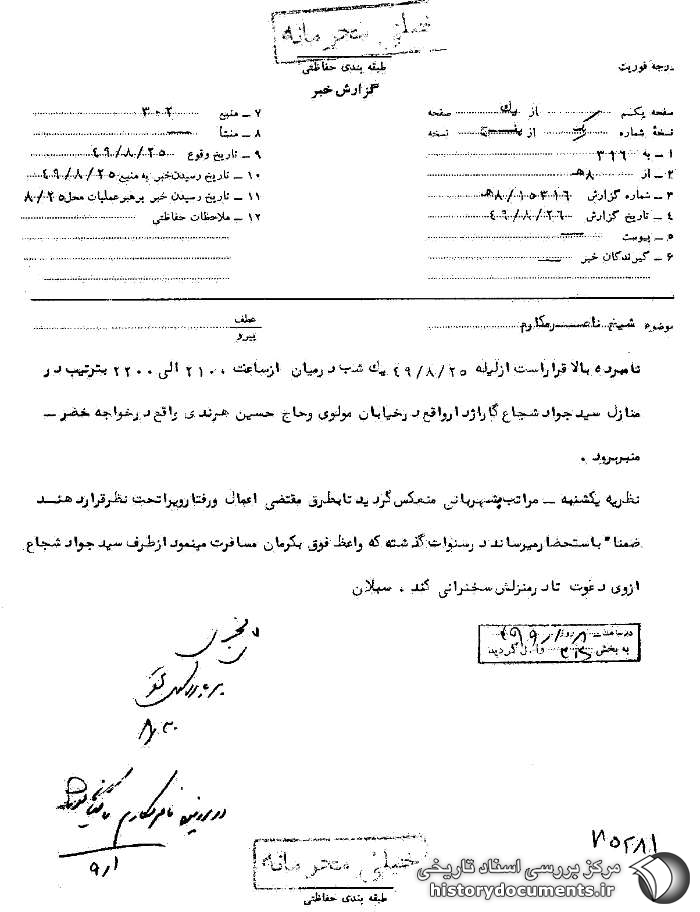 خیلی محرمانه
طبقه بندی حفاظتی
درجه فوریت
گزارش خبر
صفحه یکم از یک صفحه
نسخهٔ شماره یک از پنج نسخه
۱ ـ به ۳۱۶
۲ ـ از ۸ه‍
۳ ـ شماره گزارش ۱۵۳۱۶/۸ه‍
۴ ـ تاریخ گزارش ۴۹/۸/۲۶
۵ ـ پیوست
۶ ـ گیرندگان خبر
۷ ـ منبع ۳۰۲
۸ ـ منشأ
۹ ـ تاریخ وقوع ۴۹/۸/۲۵
۱۰ ـ تاریخ رسیدن خبر به منبع ۴۹/۸/۲۵
۱۱ ـ تاریخ رسیدن خبر برهبر عملیات محل ۸/۲۵
۱۲ ـ ملاحظات حفاظتی
موضوع شیخ ناصر مکارم
عطف
پیرو
نامبرده بالا قرار است از لیله ۴۹/۸/۲۵ یك شب در میان از ساعت ۲۱۰۰ الی ۲۲۰۰ بترتیب در
منازل سید جواد شجاع گاراژدار واقع در خیابان مولوی و حاج حسین هرندی واقع در خواجه خضر ـ
منبر برود .
نظریه یکشنبه ـ مراتب بشهربانی منعکس گردید تا بطرق مقتضی اعمال و رفتار ویرا تحت نظر قرار دهند
ضمنا" باستحضار میرساند در سنوات گذشته که واعظ فوق بکرمان مسافرت مینمود از طرف سید جواد شجاع
از وی دعوت تا در منزلش سخنرانی کند . سبلان
در ساعت روز
به بخش ۳۱۶ واصل گردید
۸/۳۰
در پرونده ناصر مکارم بایگانی شود
۹/۱
۲۵۲۸۱
خیلی محرمانه
طبقه بندی حفاظتی
مرکز بررسی اسناد تاریخی
historydocuments.ir